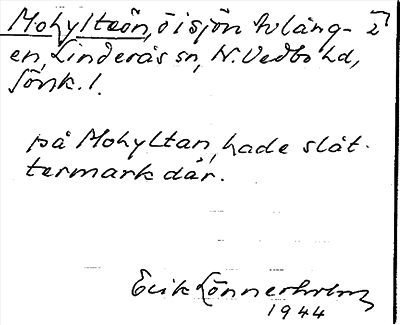 Mohyltaön, ö i sjön Avlång- 2
en, Linderås sn, N. Vedbo hd,
Jönk. l.
på Mohyltan, hade slåt-
termark där.
Erik Lönnerholm
1944